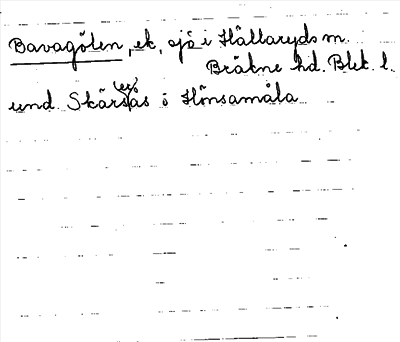 Bavagölen, ek, sjö i Hällaryds sn.
Bräkne hd. Blek. l.
und. Skärsås ö Hönsamåla